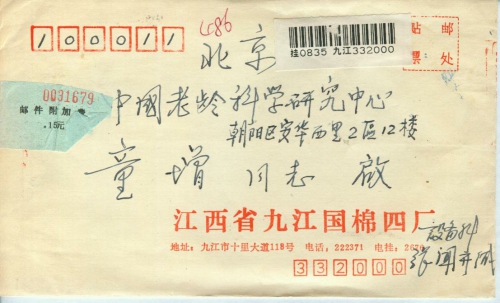 100011
486
北京
挂0835 九江332000
贴 邮
票 处
0031679
邮件附加费
.15元
中国老龄科学研究中心
朝阳区安华西里2区12楼
童增 同志 启
江西省九江国棉四厂
地址：九江市十里大道118号 电话：222371 电挂：
设备科
332000